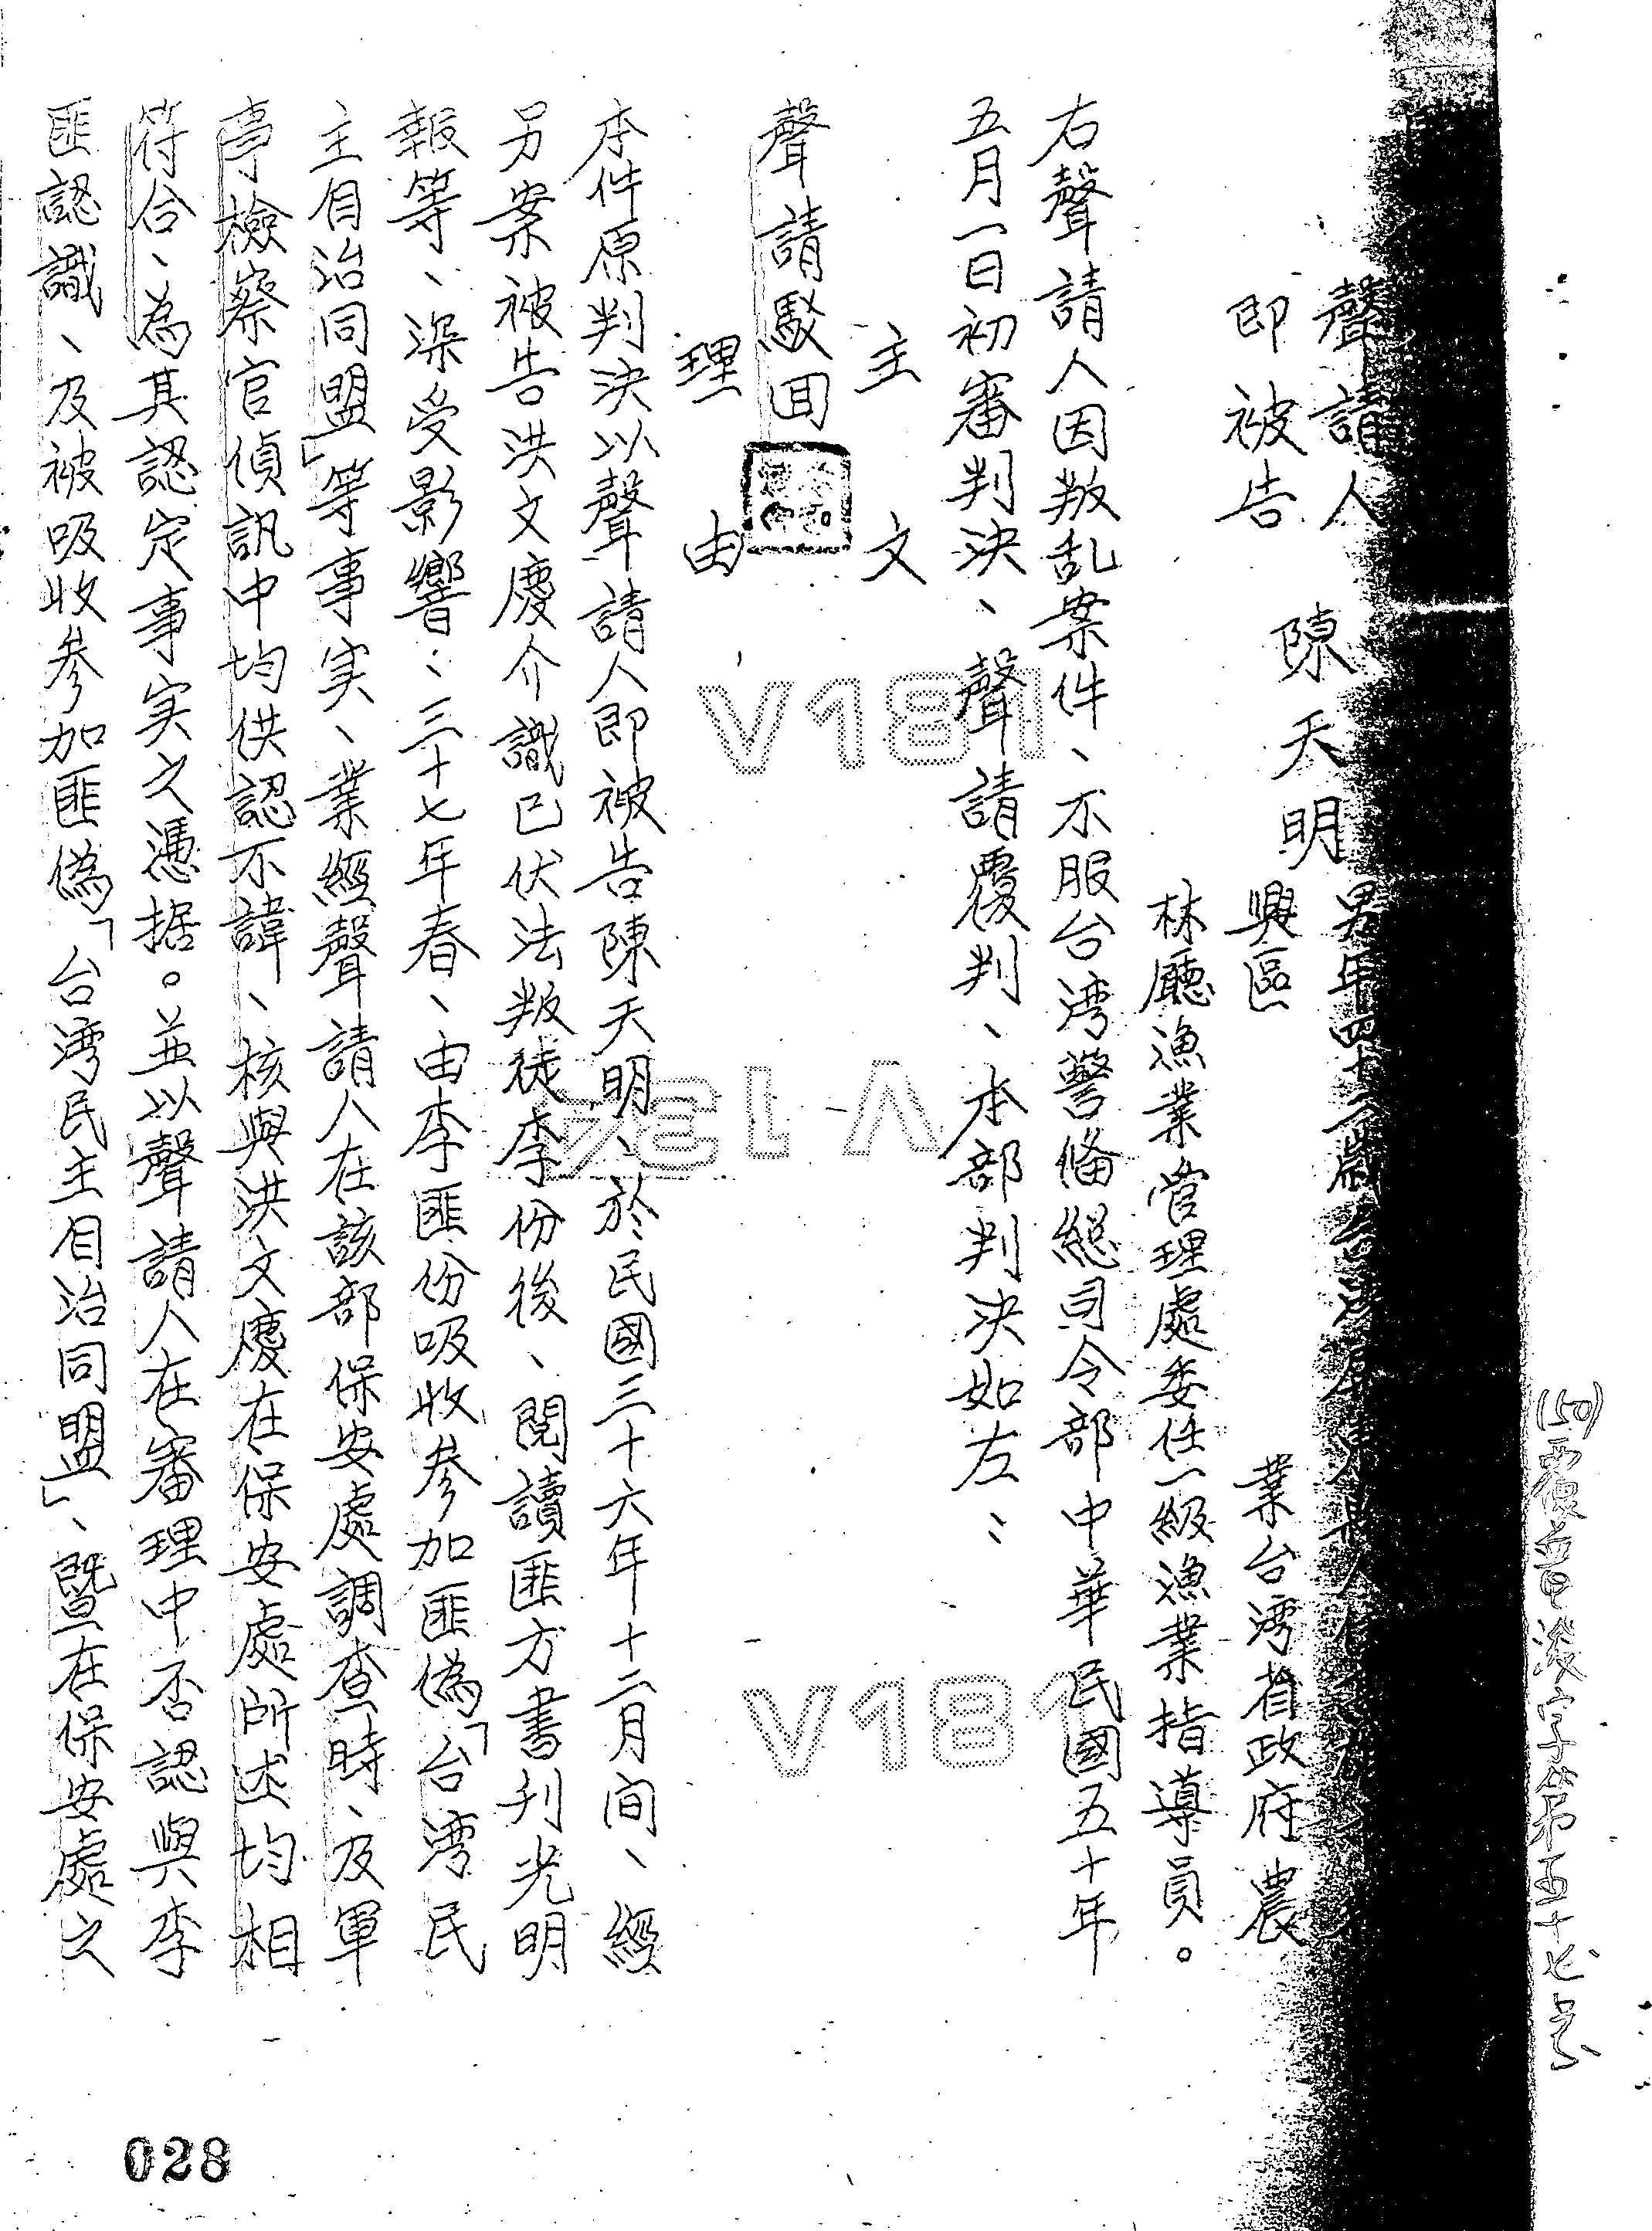 (50)覆普浚字第五十七号
聲請人
即被告
陳天明
男年四十
興區
業台湾省政府農
林廳漁業管理處委任一級漁業指導員。
右聲請人因叛乱案件、不服台湾警備總司令部中華民國五十年
五月一日初審判決、聲請覆判、本部判決如左：
主文
聲請駁回
理由
本件原判決以聲請人即被告陳天明、於民國三十六年十二月间、經
另案被告洪文慶介識已伏法叛徒李份後、閱讀匪方書刊光明
報等、深受影響：三十七年春、由李匪份吸收参加匪偽「台湾民
主自治同盟」等事実、業經聲請人在該部保安處調查時、及軍
事檢察官偵訊中均供認不諱、核與洪文慶在保安處所述均相
符合、為其認定事実之憑据。並以聲請人在審理中否認與李
匪認識、及被吸收参加匪偽「台湾民主自治同盟」、暨在保安處之
V181
V181
V181
028